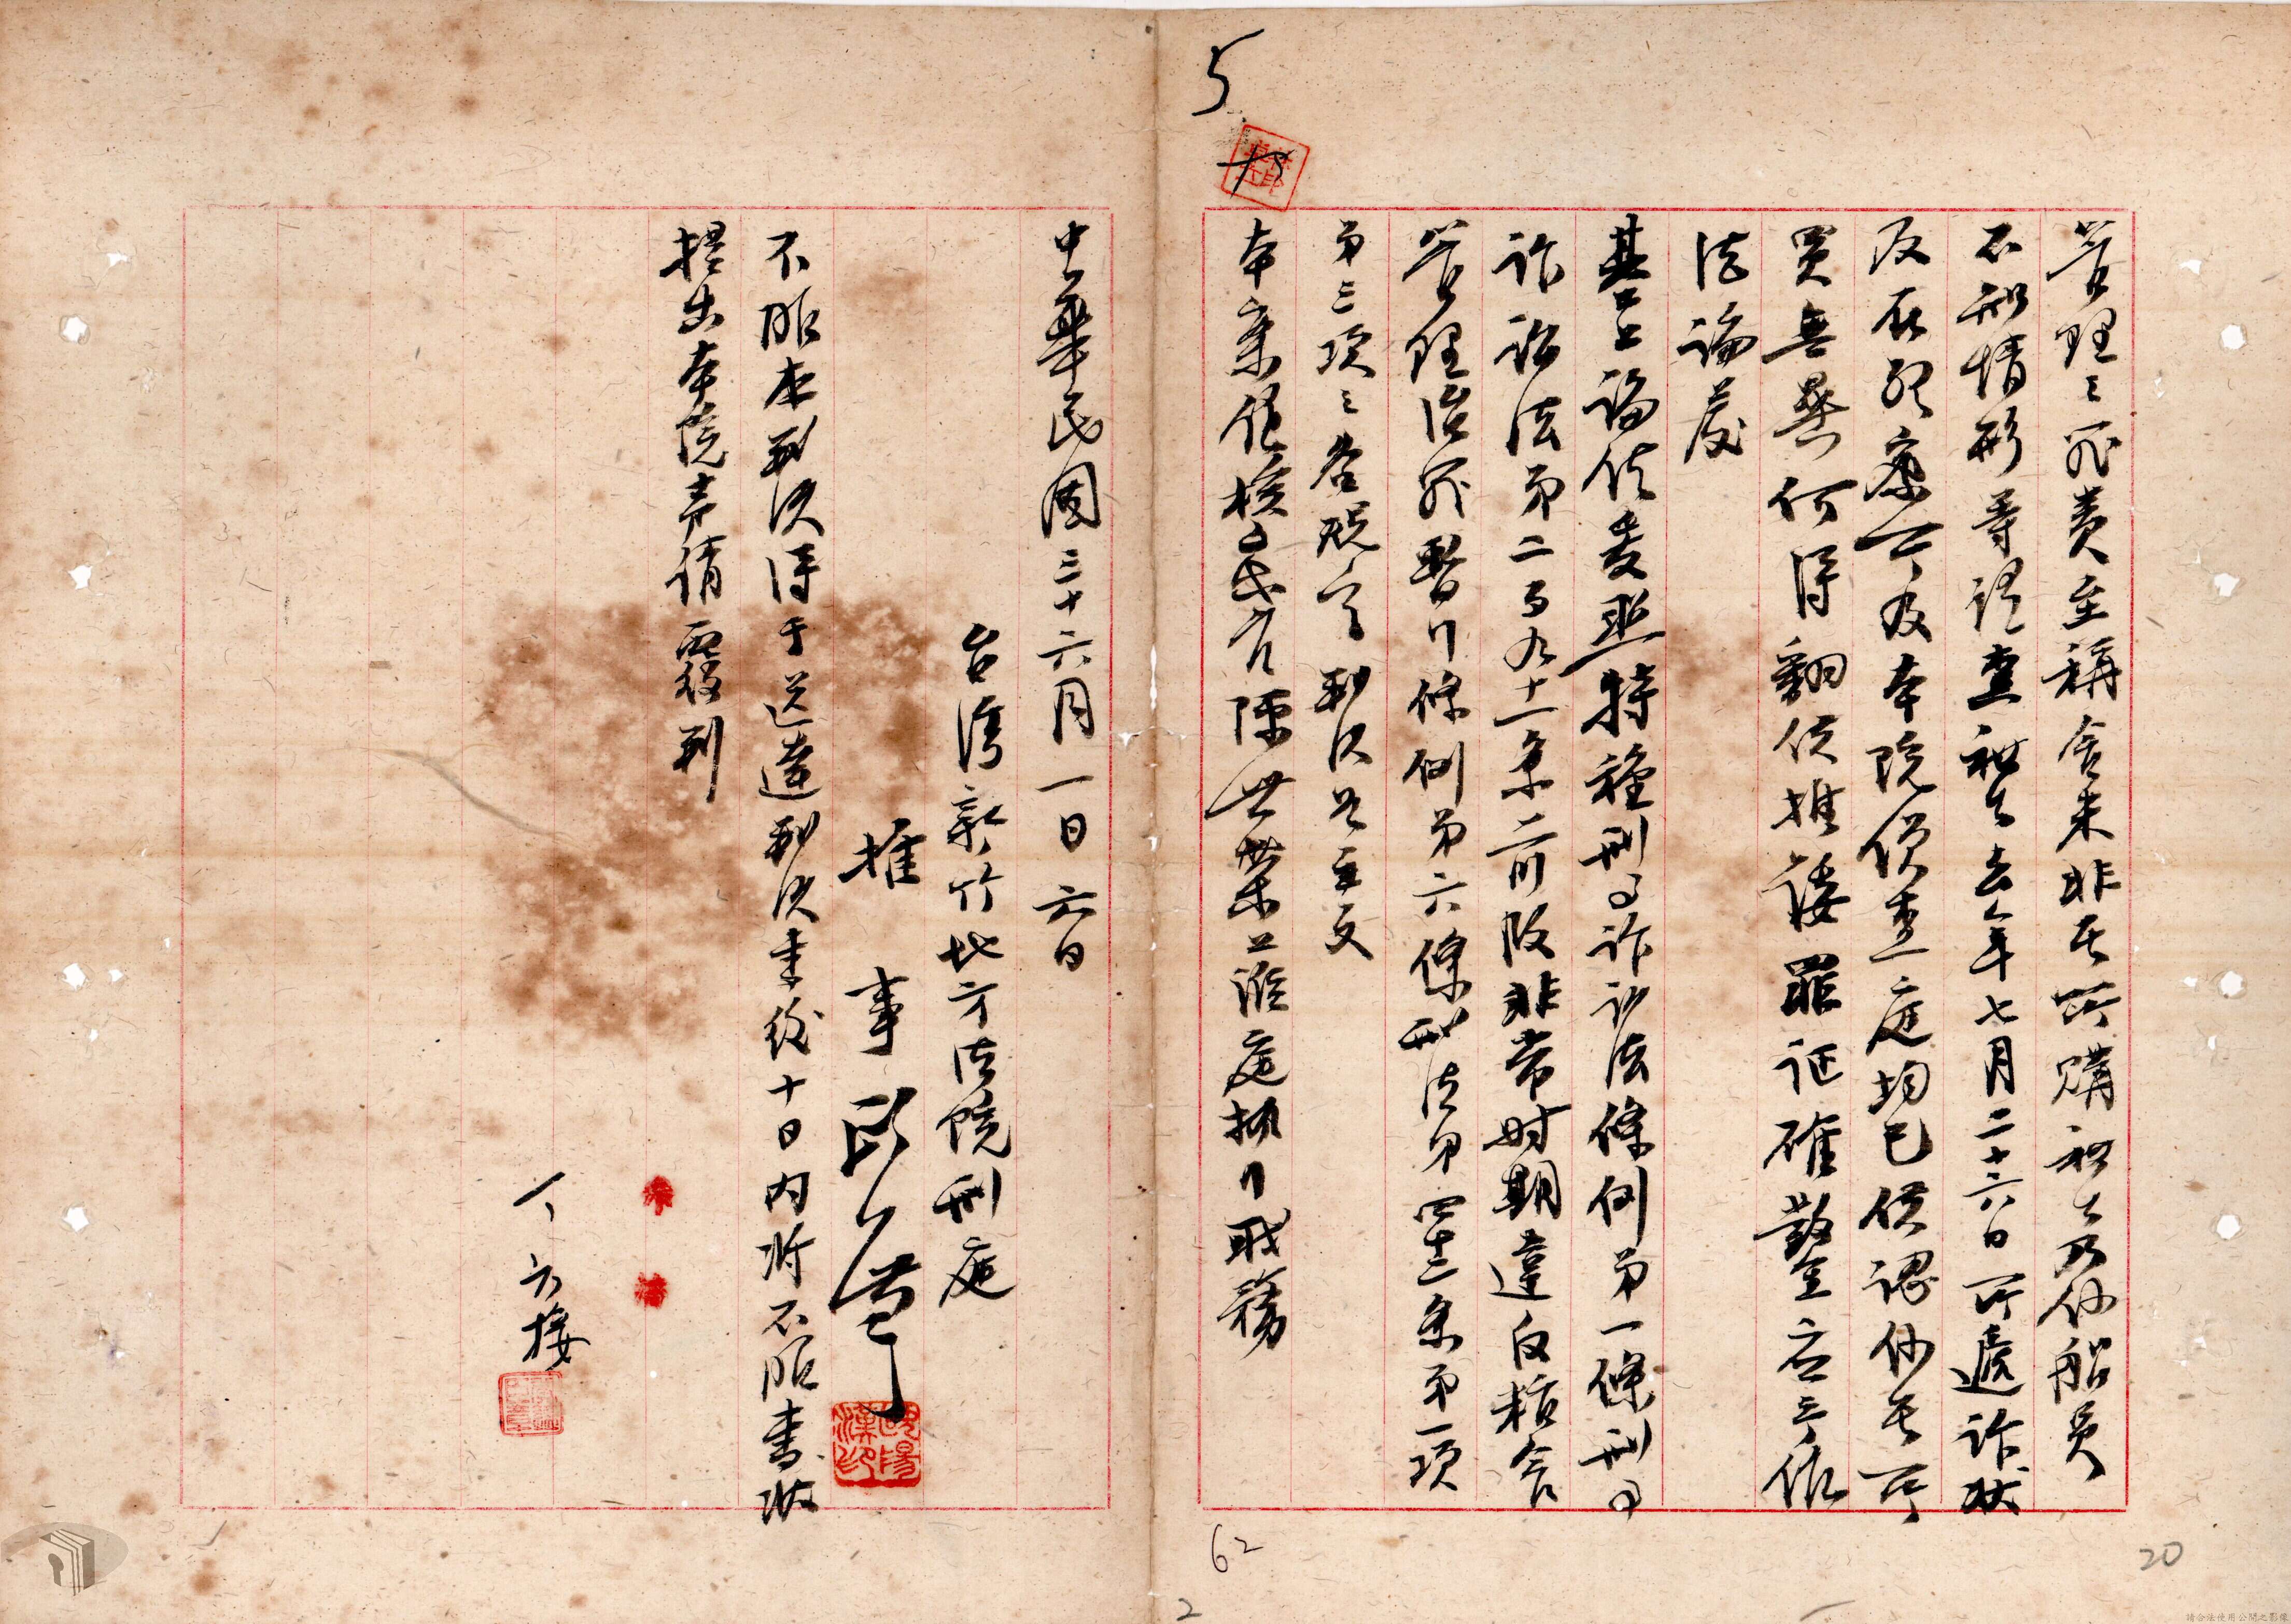 管理之罪責至稱食米非其所購和生乃係船員
不知情形等語查和生去年七月二十六日所遞訴狀
反在
警察所及本院偵查庭均已供認係其所
買無異何得翻供推諉罪証確鑿應予依
法論處
基上論結爰照特種刑事訴訟法條例第一條刑事
訴訟法第二百九十一條前段非常時期違反糧食
管理治罪暫行條例第六條刑法第四十二條第一項
第三項之各規定判決如主文
本案經檢察官陳世榮蒞庭執行職務
中華民國三十六月一日六日
台灣新竹地方法院刑庭
推事
歐陽漢印
不服本判決得于送達判決書後十日内將不服書狀
提出本院声請覆判
丁 六 接
5
62
20
2
請合法使用公開之影像